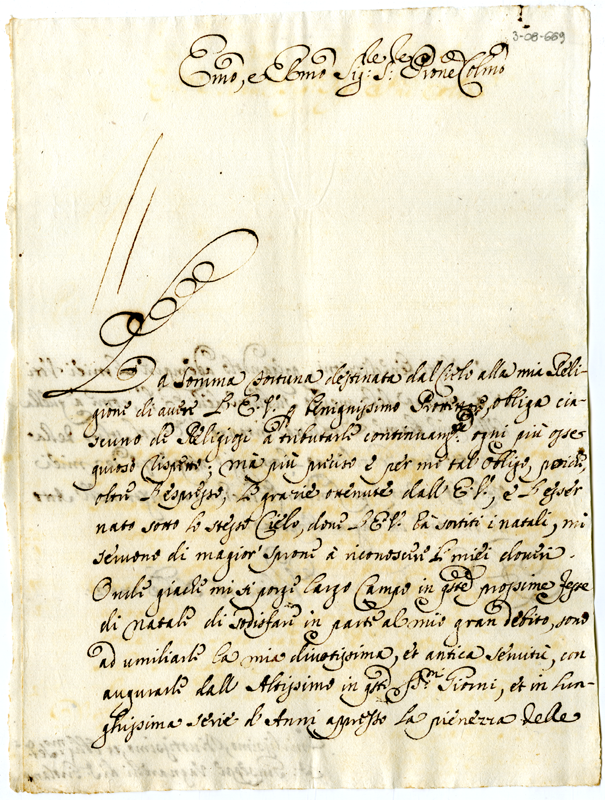 3-08-669
Emo, e Rmo Sig: S: Prone Colmo
La Somma Fortuna destinata dal Cielo alla mia Reli-
gione di avere L'E.V. p benignissimo Protettore, obliga cia-
scuno de Religiosi a tributarle continuamte ogni più osse-
quioso rispetto; mà più preciso è per me tal obligo, poiche,
oltre l'espresso, le grazie ottenute dall'E.V., e l'esser
nato sotto lo stesso Cielo, dove l'E.V. hà sortiti i natali, mi
servono di magior sprone à riconoscere li miei doveri.
Onde giache mi si porge largo Campo in qste prossime feste
di natale di sodisfare in parte al mio gran debito, sono
ad umiliarle la mia divotissima, et antica servitù, con
augurarle dall'Altissimo in qsti Ssmi Giorni, et in lun-
ghissima serie d'Anni appresso la pienezza delle